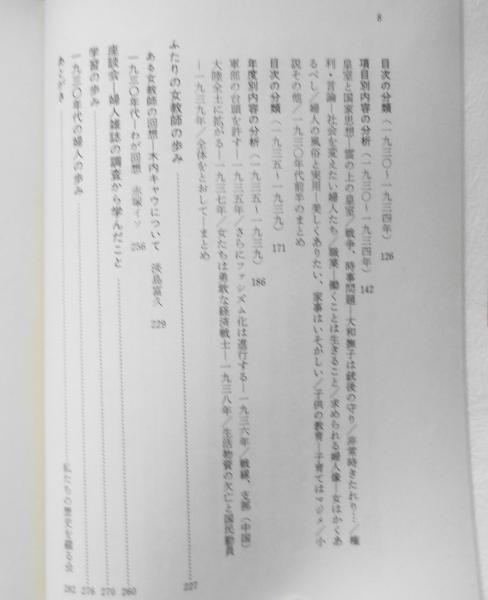 8
目次の分類（一九三〇～一九三四年） 126
項目別内容の分析（一九三〇～一九三四年） 142
皇室と国家思想―雲の上の皇室／戦争、時事問題―大和撫子は銃後の守り／非常時きたれり…／権
利・言論―社会を変えたい婦人たち／職業―働くことは生きること／求められる婦人像―女はかくあ
るべし／婦人の風俗と実用―美しくありたい、家事はいそがしい／子供の教育―子育てはマジメ／小
説その他／一九三〇年代前半のまとめ
目次の分類（一九三五～一九三九） 171
年度別内容の分析（一九三五～一九三九） 186
軍部の台頭を許す―一九三五年／さらにファシズム化は進行する―一九三六年／戦線、支那（中国）
大陸全土に拡がる―一九三七年／女たちは勇敢な経済戦士―一九三八年／生活物資の欠乏と国民動員
―一九三九年／全体をとおして―まとめ
ふたりの女教師の歩み 227
ある女教師の回想―木内キャウについて 淡島富久 229
一九三〇年代―わが回想 赤塚イツ 256
座談会―婦人雑誌の調査から学んだこと 260
学習の歩み 270
一九三〇年代の婦人の歩み 276
あとがき 私たちの歴史を綴る会 282